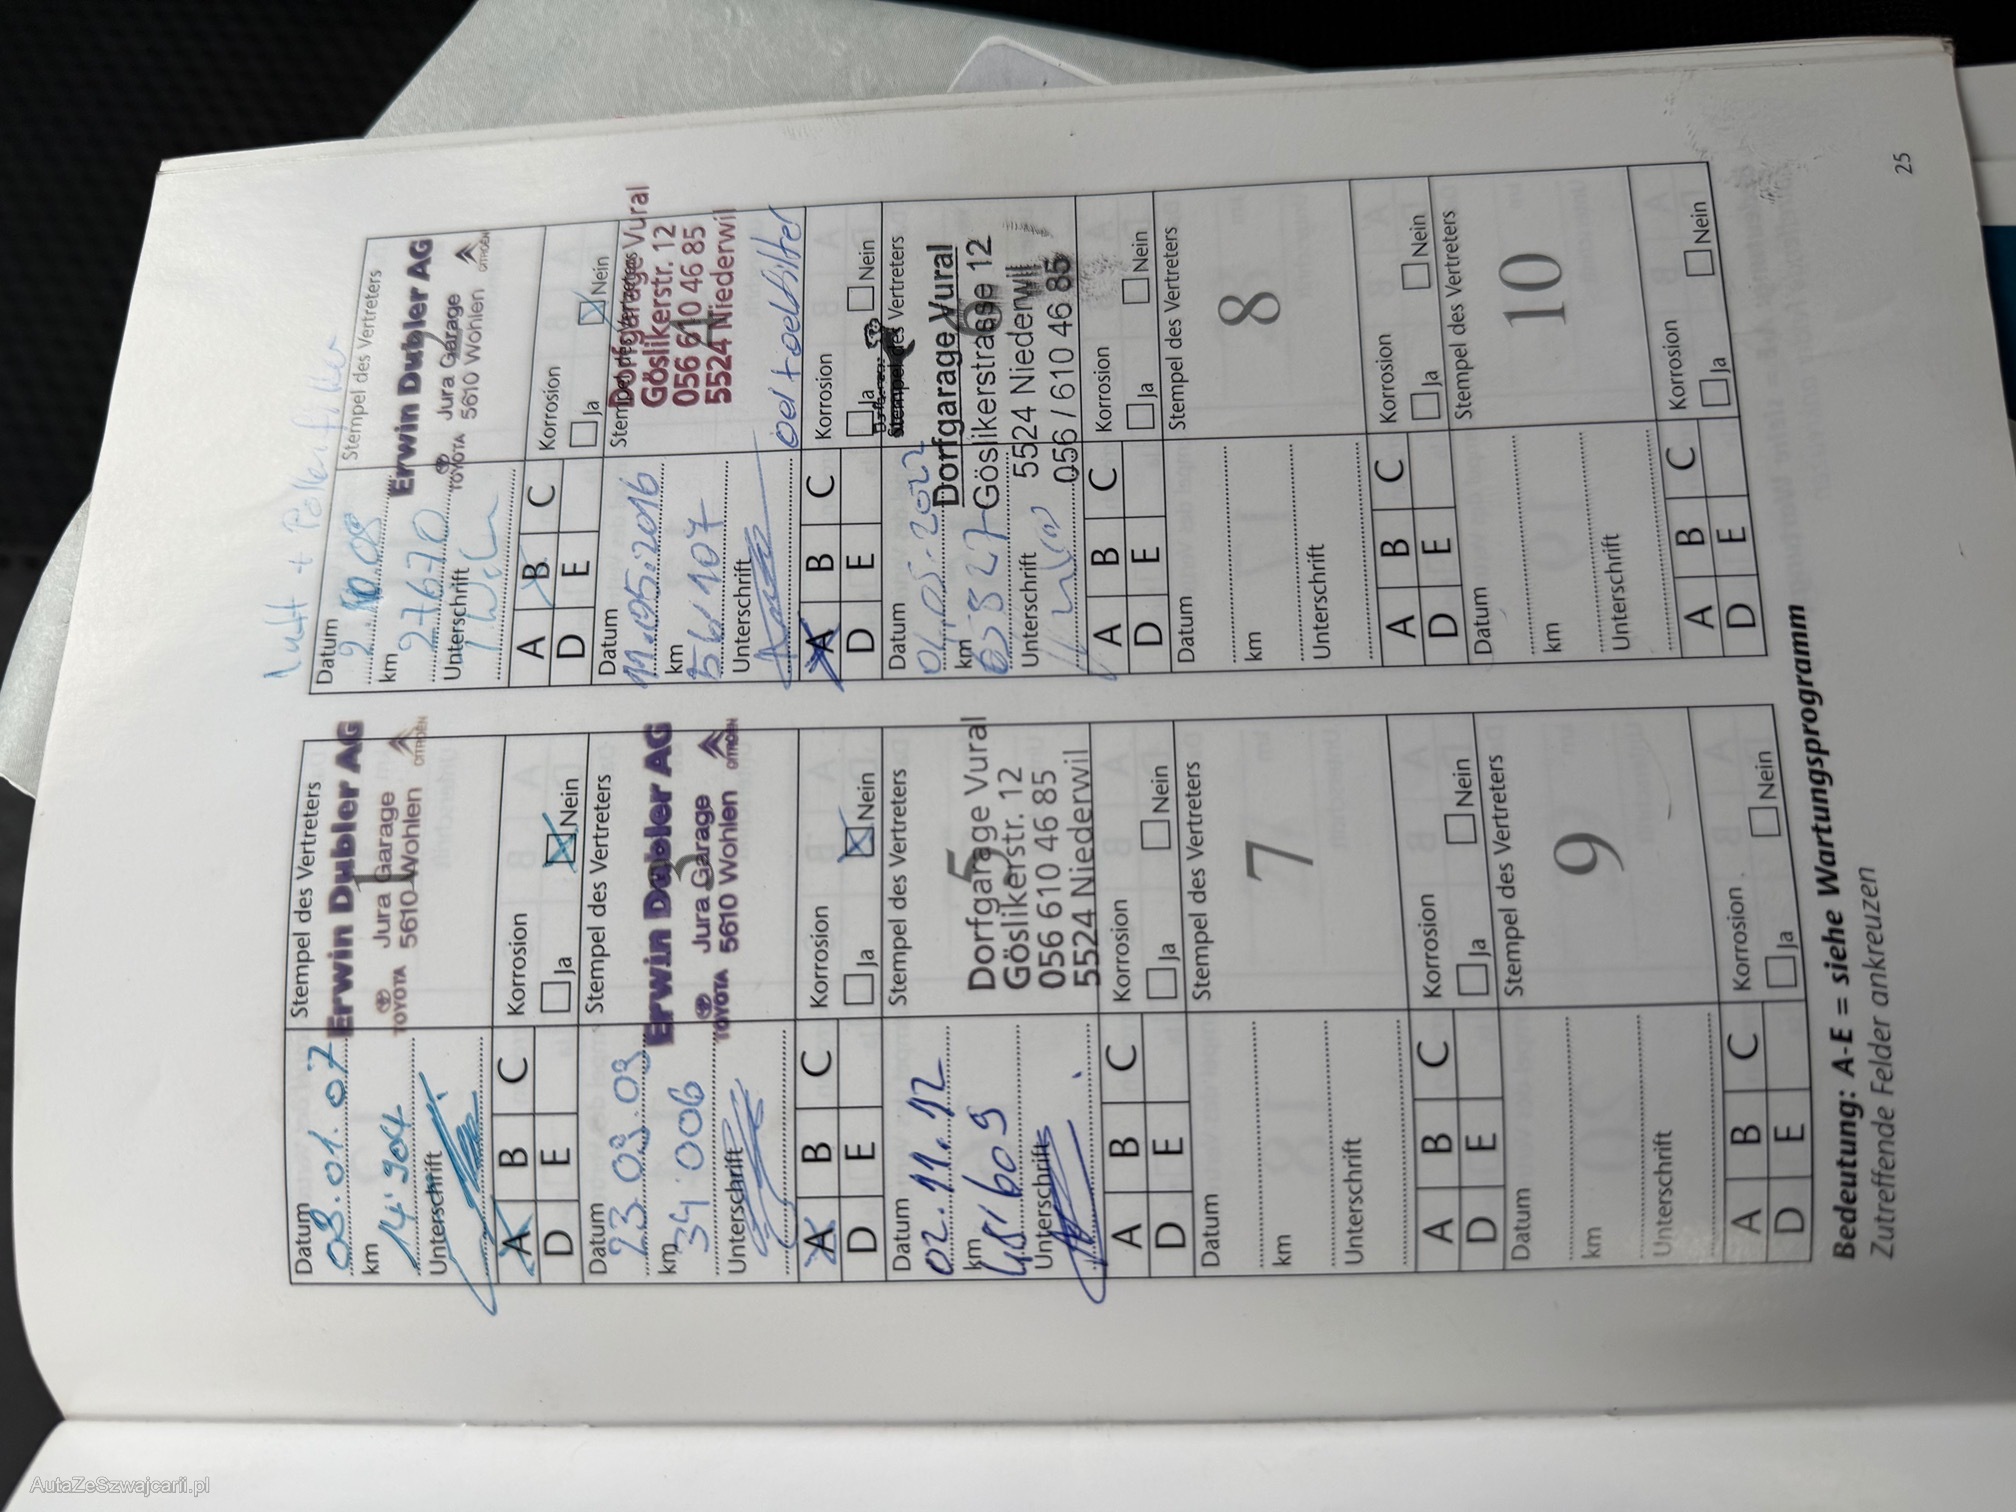 Luft + Pollenfilter
Datum
Stempel des Vertreters
08.01.07
Erwin Dubler AG
km
1
14'904
TOYOTA
Jura Garage
5610 Wohlen
CITROËN
Unterschrift
A B C
D E
Korrosion
Ja
Nein
Datum
Stempel des Vertreters
Erwin Dubler AG
km
2
27670
TOYOTA
Jura Garage
5610 Wohlen
CITROËN
Unterschrift
A B C
D E
Korrosion
Ja
Nein
Datum
Stempel des Vertreters
23.09.09
Erwin Dubler AG
km
3
34'006
TOYOTA
Jura Garage
5610 Wohlen
CITROËN
Unterschrift
A B C
D E
Korrosion
Ja
Nein
Datum
Stempel des Vertreters
11.05.2016
Dorfgarage Vural
Göslikerstr. 12
056 610 46 85
5524 Niederwil
km
56'107
Unterschrift
oel + oelfilter
A B C
D E
Korrosion
Ja
Nein
Datum
Stempel des Vertreters
02.11.12
5
Dorfgarage Vural
Göslikerstr. 12
056 610 46 85
5524 Niederwil
km
48'609
Unterschrift
A B C
D E
Korrosion
Ja
Nein
Datum
Stempel des Vertreters
04.05.2022
Dorfgarage Vural
Göslikerstrasse 12
5524 Niederwil
056 / 610 46 85
km
6
Unterschrift
A B C
D E
Korrosion
Ja
Nein
Datum
Stempel des Vertreters
7
km
Unterschrift
A B C
D E
Korrosion
Ja
Nein
Datum
Stempel des Vertreters
8
km
Unterschrift
A B C
D E
Korrosion
Ja
Nein
Datum
Stempel des Vertreters
9
km
Unterschrift
A B C
D E
Korrosion
Ja
Nein
Datum
Stempel des Vertreters
10
km
Unterschrift
A B C
D E
Korrosion
Ja
Nein
Bedeutung: A-E = siehe Wartungsprogramm
Zutreffende Felder ankreuzen
25
AutaZeSzwajcarii.pl